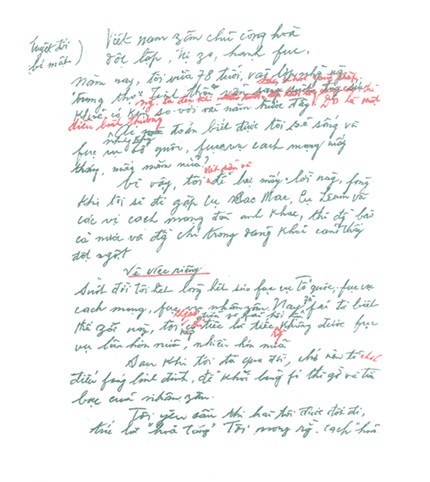 Tuyệt đối bí mật)
Việt nam zân chủ cộng hoà
độc lập, tự zo, hạnh fúc.
năm nay, tôi vừa 78 tuổi, vào lớp những
Trung thọ Tinh thần
Khoẻ có kém so với vài năm trước đây. Đó là một
điều bình thường
Ai mà đoán biết được tôi còn sống và
fục vụ tổ quốc, fục vụ cách mạng mấy
tháng, mấy năm nữa?
Vì vậy, tôi viết sẵn để lại mấy lời này, fòng
khi tôi sẽ đi gặp cụ Các Mác, Cụ Lênin và
các vị cách mạng đàn anh khác, thì đồng bào
cả nước và đồng chí trong đảng khỏi cảm thấy
đột ngột
Về việc riêng
Suốt đời tôi hết lòng hết sức fục vụ Tổ quốc, fục vụ
cách mạng, fục vụ nhân zân. Nay zù fải từ biệt
thế giới này, tôi không có điều gì fải hối hận
chỉ tiếc là tiếc không được fục
vụ lâu hơn nữa, nhiều hơn nữa
Sau khi tôi đã qua đời, chớ nên tổ chức
điếu fúng linh đình, để khỏi lãng fí thì giờ và tiền
bạc của nhân zân.
Tôi yêu cầu thi hài tôi được đốt đi,
tức là "hoả táng". Tôi mong rằng cách "hoả